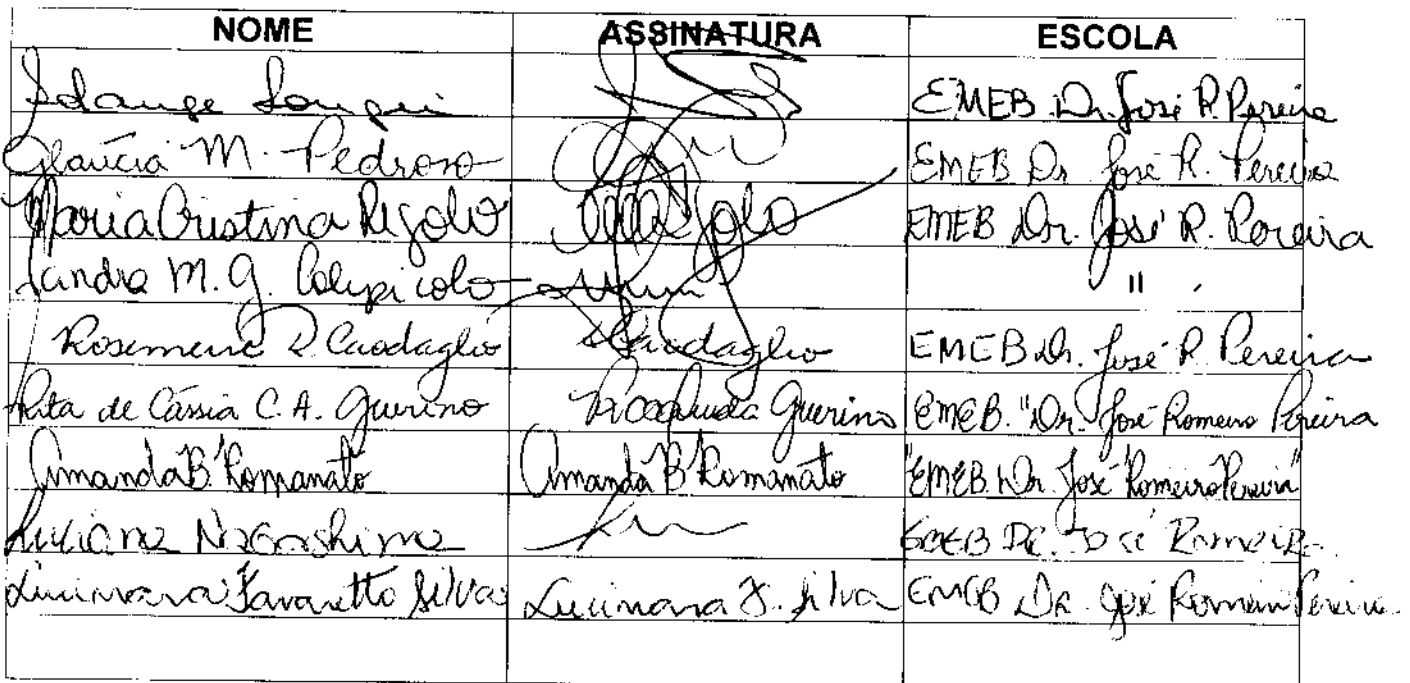 NOME ASSINATURA ESCOLA
Solange EMEB Dr. José R. Pereira
Glaúcia M. Pedroso EMEB Dr. José R. Pereira
Maria Cristina Rigolo EMEB Dr. José R. Pereira
Sandra M. G. "
Rosemeire Caodaglio Caodaglio EMEB Dr. José R. Pereira
Rita de Cássia C. A. Guerino Guerino EMEB. "Dr. José Romeiro Pereira
Amanda B. Romanato Amanda B Romanato "EMEB. Dr. José Romeiro Pereira"
Luciana Nagashima EMEB Dr. José Romeiro
Lucimara Favaretto Silva Lucimara F. Silva EMEB Dr. José Romeiro Pereira.